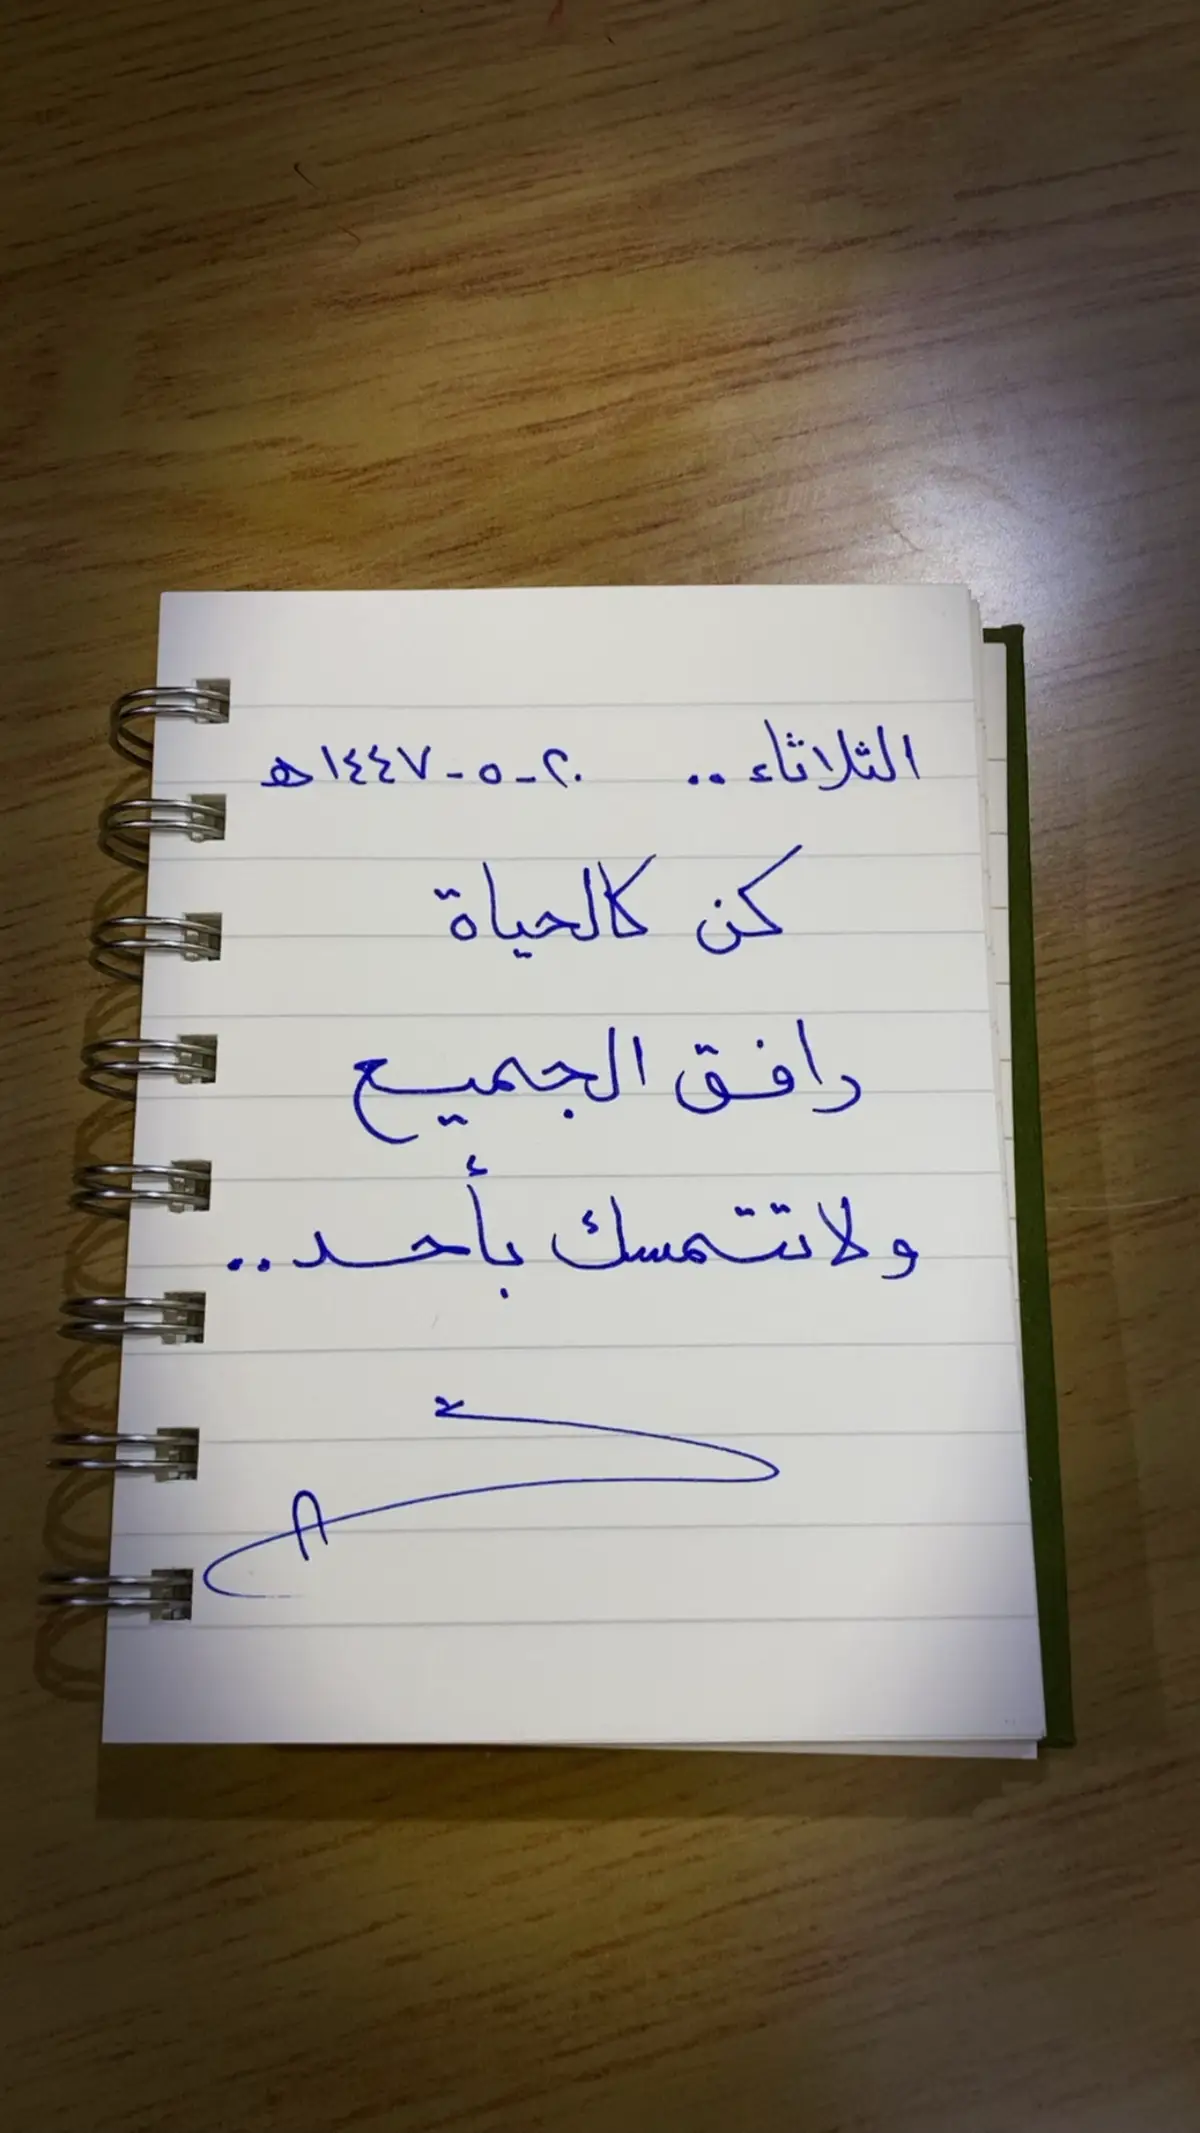 الثلاثاء .. ٢٠-٥-١٤٤٧هـ
كن كالحياة
رافق الجميع
ولا تتمسك بأحد..